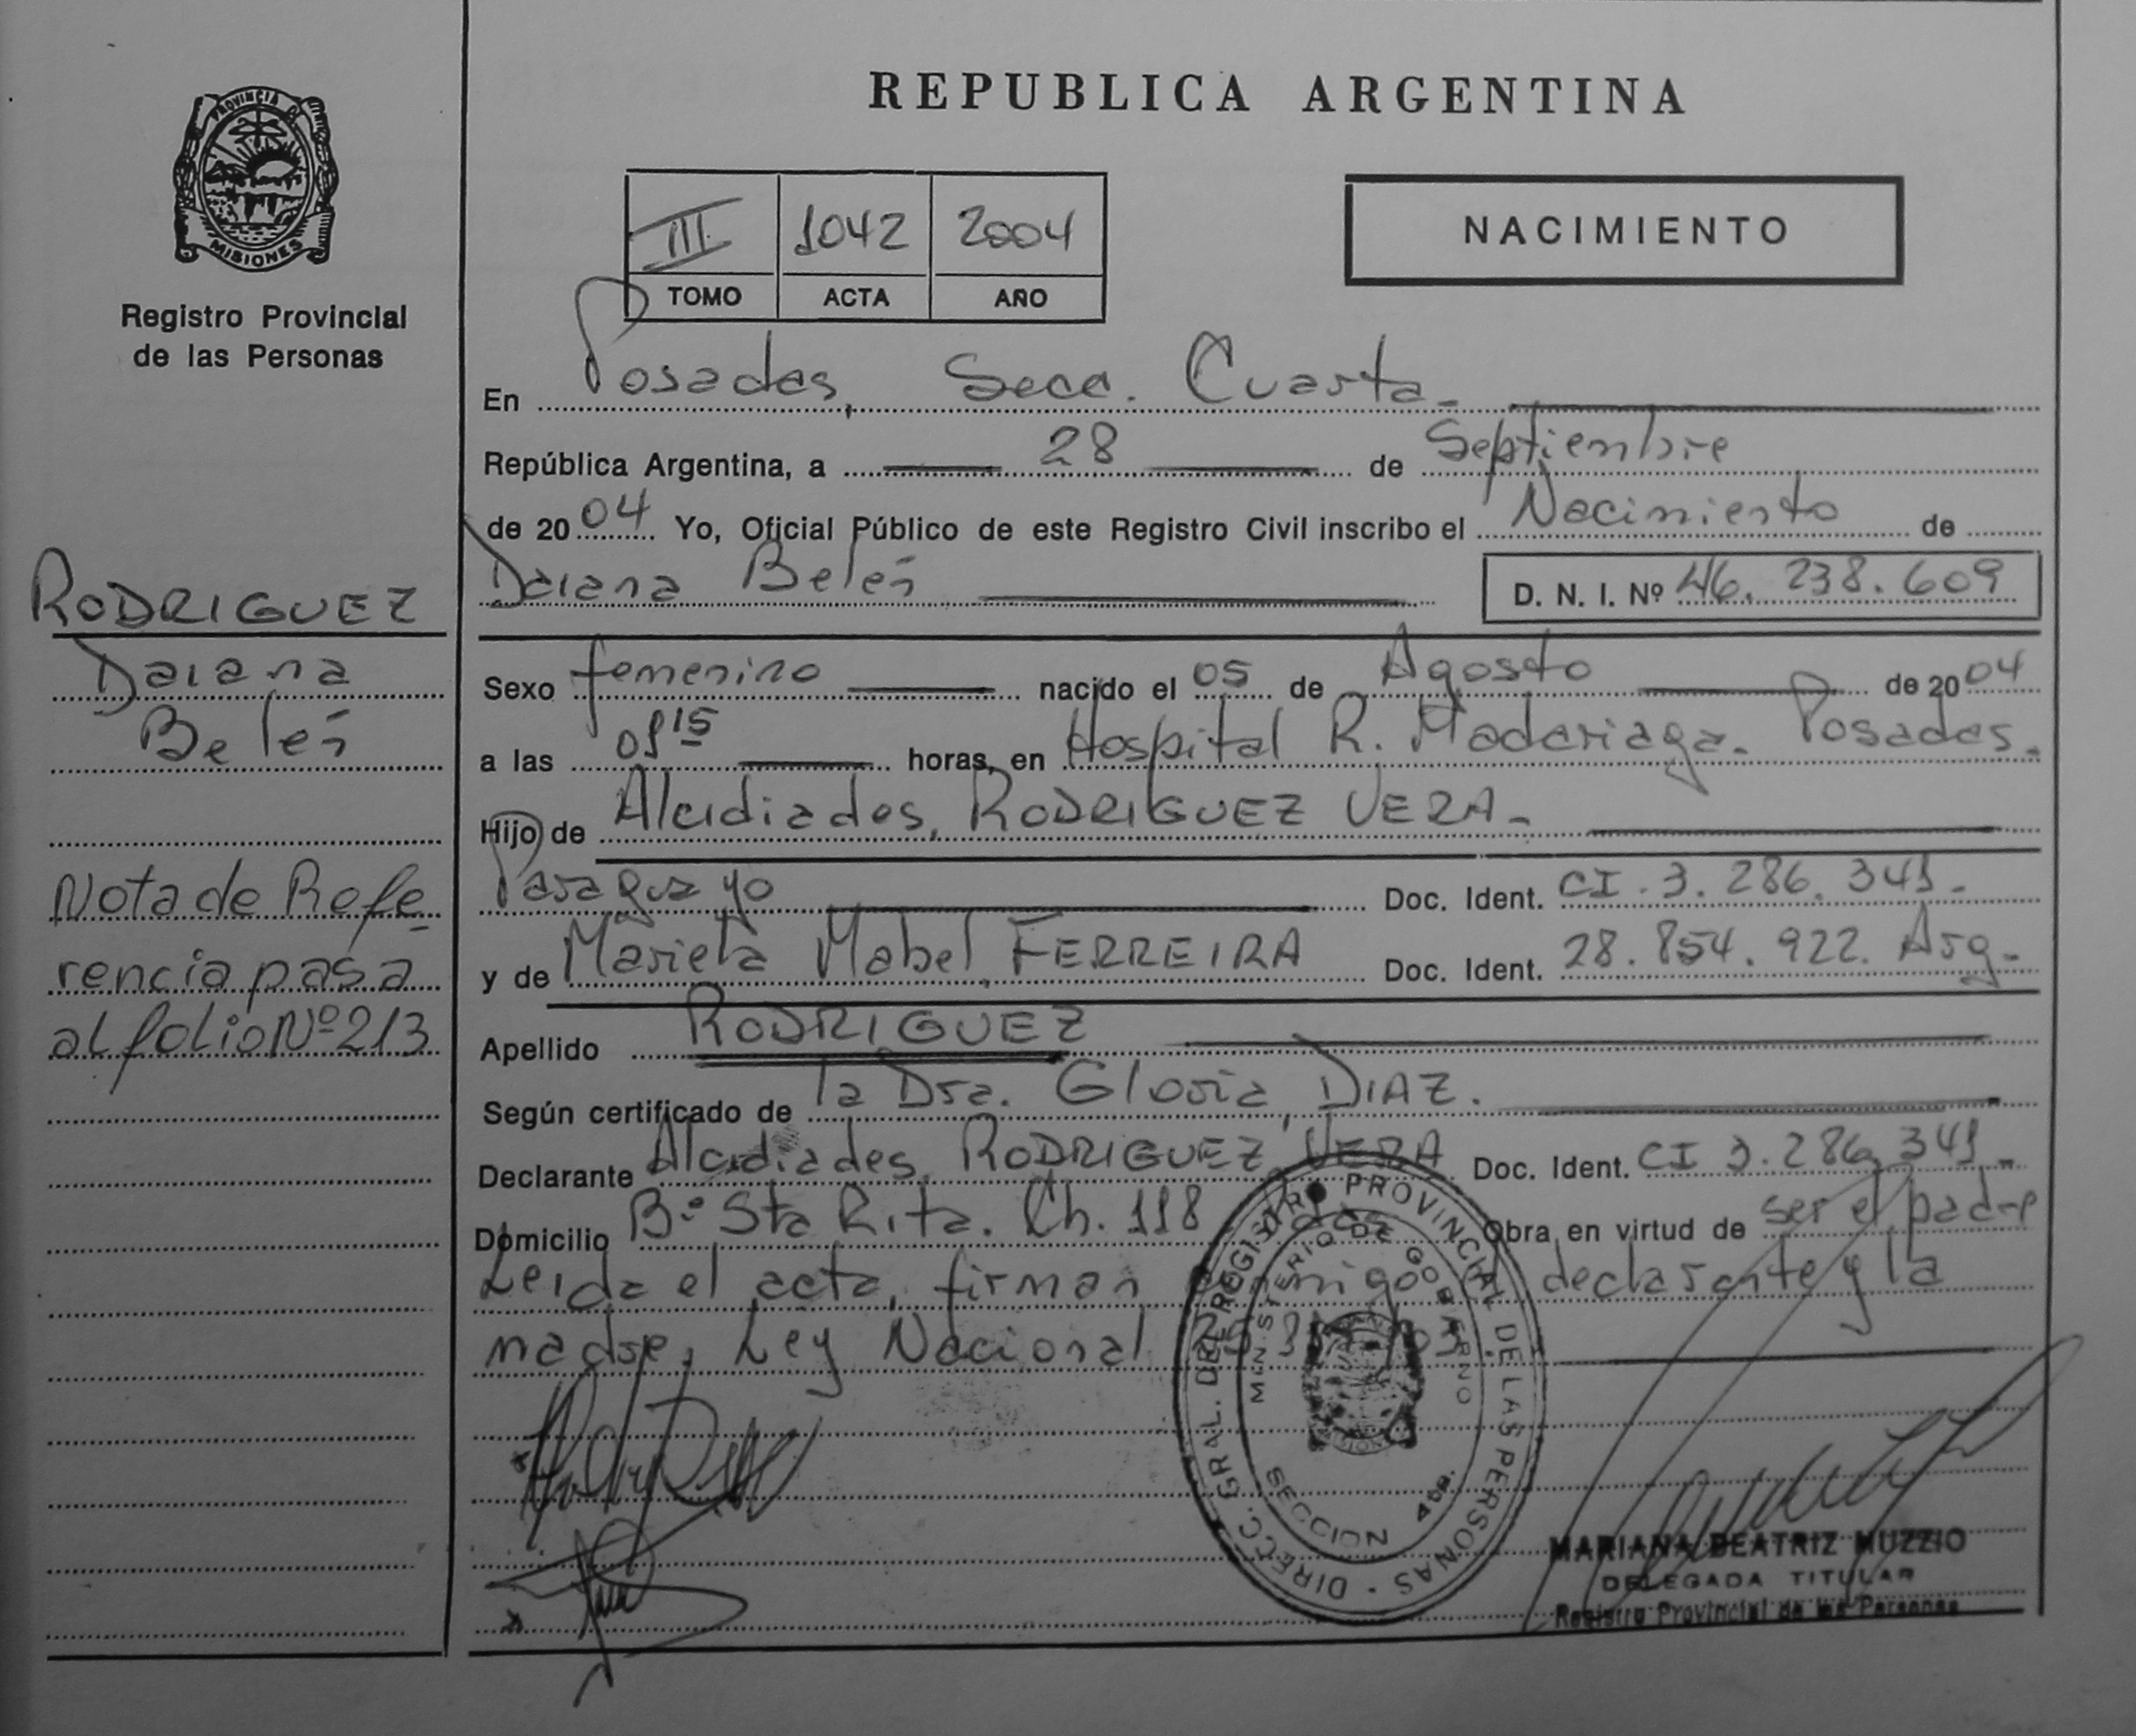 PROVINCIA DE
MISIONES
Registro Provincial
de las Personas
RODRIGUEZ
Daiana
Belén
Nota de Refe
rencia pasa
al folio Nº 213
REPUBLICA ARGENTINA
III 1042 2004
TOMO ACTA AÑO
NACIMIENTO
En Posadas, Secc. Cuarta.
República Argentina, a 28 de Septiembre
de 2004 Yo, Oficial Público de este Registro Civil inscribo el Nacimiento de
Daiana Belén D. N. I. Nº 46.238.609
Sexo femenino nacido el 05 de Agosto de 2004
a las horas, en Hospital R. Madariaga. Posadas.
Hijo de RODRIGUEZ VERA.
Paraguayo Doc. Ident. CI. 3.286.341.
y de Mariela Mabel, FERREIRA Doc. Ident. 28.854.922. Arg.
Apellido RODRIGUEZ
Según certificado de la Dra. Gloria, DIAZ.
Declarante RODRIGUEZ VERA Doc. Ident. CI 3.286.341.
Domicilio Bº Sta Rita. Ch. 118 Obra en virtud de ser el padre
Leida el acta, firman conmigo el declarante y la
madre, Ley Nacional
DIRECC. GRAL. DEL REGISTRO PROVINCIAL DE LAS PERSONAS
MINISTERIO DE GOBIERNO
SECCION 4ta.
MARIANA BEATRIZ MUZZIO
DELEGADA TITULAR
Registro Provincial de las Personas